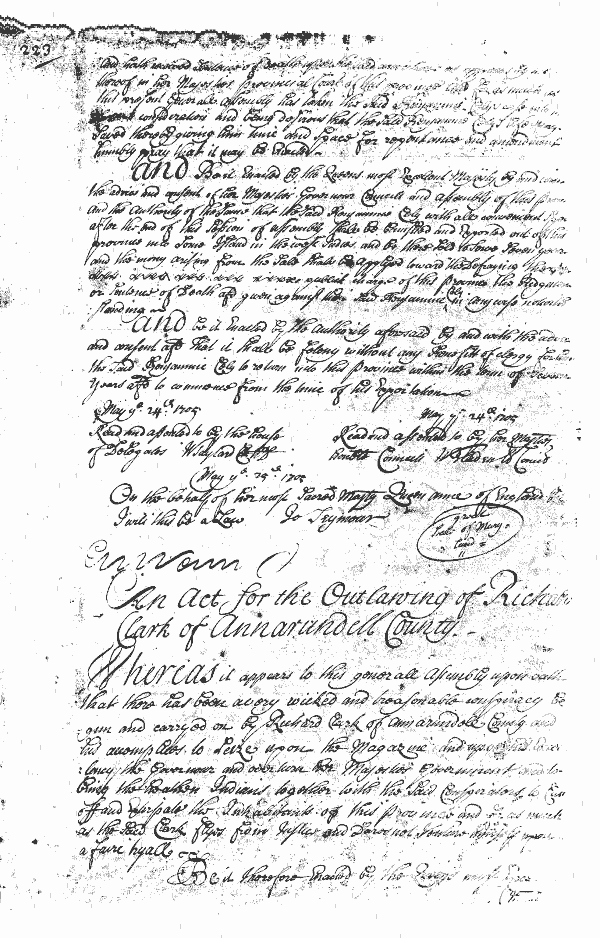 223
And hath received Sentence of Death
thereof in her Majestys provincial Court of this province
this present Generall Assembly has taken the said Benjamine
consideration and being desirous that the said Benjamine Cely may
saved thereby giving him time and space for repentance and amendment
humbly pray that it may be Enacted
And Be it Enacted by the Queens most Excelent Majesty by and with
the advice and consent of her Majestys Governour Councill and Assembly of this
and the Authority of the same that the said Benjamine Cely with all convenient
after the end of this Session of assembly shall be banished and Exported out of this
province into some Island in the west Indies and be there sold to serve Seven years
and the mony arising from the Sale shall be applyed toward the Defraying
publick charge of this province the Judgment
or Sentence of Death afd given against him the said Benjamine Cely in any wise notwith
standing
And be it Enacted by the Authority aforesaid by and with the advice
and consent afd that it shall be felony without any Benefitt of clergy for
the said Benjamine Cely to return into this province within the time of Seven
Years afd to commence from the time of his Exportation
May ye. 24th. 1705
May ye. 24th. 1705
Read and assented to by the house
of Delegates
Read and assented to by her Majtys
honble Councill W Bladen Cl Councl
May ye. 25th. 1705
On the behalf of her most Sacred Majty Queen Anne of England &c
I will this be a Law Jo Seymour
great
Seale of Mary-
land
An Act for the Outlawing of Richard
Clark of Annarundell County.
Whereas it appears to this generall Assembly upon oath
that there has been a very wicked and treasonable conspiracy be
gun and carryed on by Richard Clark of Annarundell County and
his accomplices to Seize upon the Magazine and upon
the Governour and overturn her Majestys Government and to
bring the heathen Indians together with the said Conspirators to Cutt
off and extirpate the Inhabitants of this province and for as much
as the said Clark flyes from Justice and Dares not venture himself upon
a faire tryall
Be it therefore Enacted by the Queens most